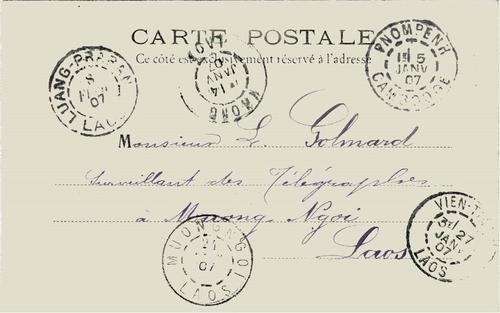 CARTE POSTALE
Ce côté est exclusivement réservé à l'adresse
PNOMPENH
5
JANV
07
CAMBODGE
KHONG
14
JANV
07
LUANG-PRABAN
8
07
LAOS
Monsieur L. Golmard
Surveillant des Télégraphes
à Muong-Ngoi
Laos
VIEN-T
27
JANV
07
LAOS
MUONG NGOI
21
07
LAOS